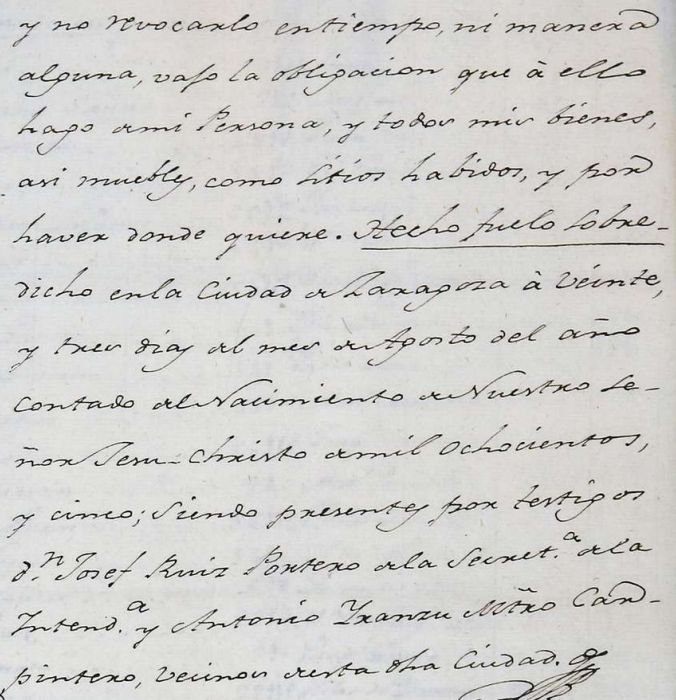 y no revocarlo entiempo, ni manera
alguna, vaso la obligacion que à ello
hago ami Persona, y todos mis bienes,
asi muebles, como sitios habidos, y por
haver donde quiere. Hecho fuelo sobre-
dicho enla Ciudad de Zaragoza à veinte,
y tres dias del mes de Agosto del año
contado del Nacimiento de Nuestro Se-
ñor Jesu-Christo de mil ochocientos,
y cinco; siendo presentes por testigos
d.n Josef Ruiz Portero de la Secret.a de la
Intend.a y Antonio Yranzu Mtro Car-
pintero, vecinos de esta dha Ciudad.